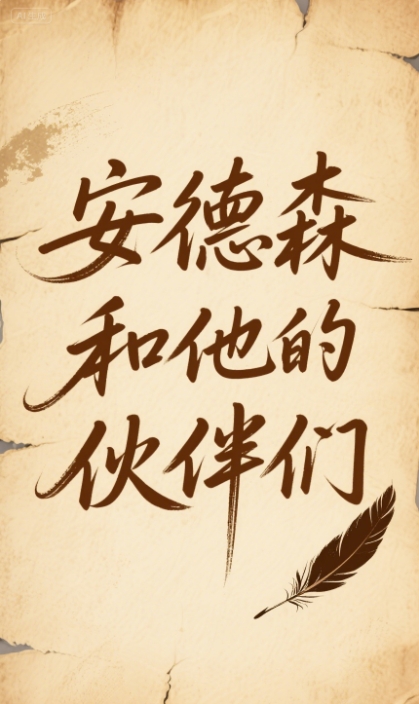 安德森
和他的
伙伴们